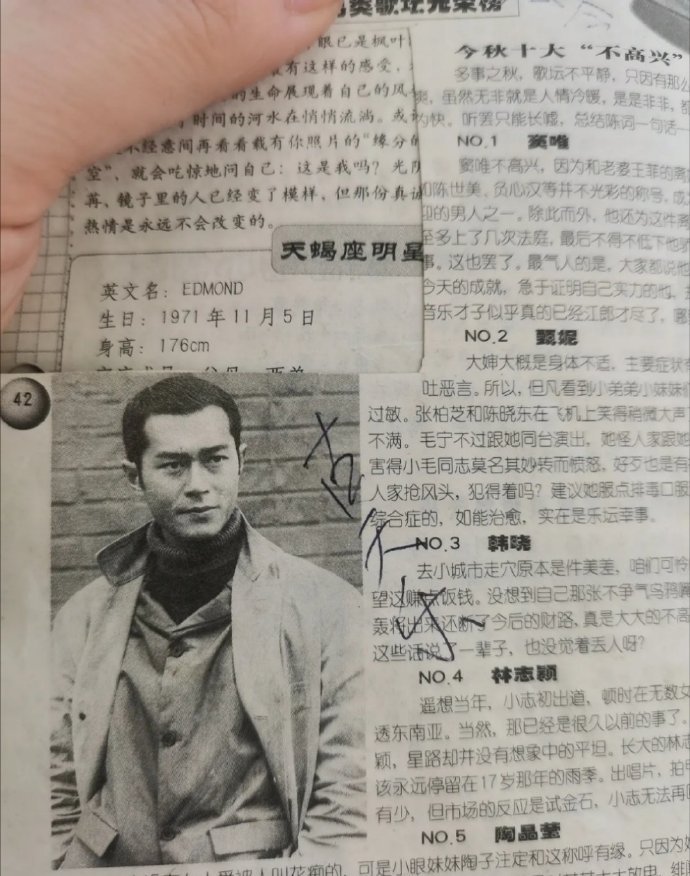 眼已是枫叶
有这样的感受，
的生命展现着自己的风
时间的河水在悄悄流淌。或
不经意间再看看载有你照片的“缘分的
空”，就会吃惊地问自己：这是我吗？光阴
苒，镜子里的人已经变了模样，但那份真诚
热情是永远不会改变的。
天蝎座明星
英文名：EDMOND
生日：1971年11月5日
身高：176cm
42
古天乐
今秋十大“不高兴”
多事之秋，歌坛不平静，只因有那么
虽然无非就是人情冷暖，是是非非，都
为快。听罢只能长嘘，总结陈词一句话
NO.1 窦唯
窦唯不高兴，因为和老婆王菲的离
和陈世美、负心汉等并不光彩的称号，成
的男人之一。除此而外，他还为这件离
至多上了几次法庭，最后不得不低下他
事。这也罢了。最气人的是，大家都说他
今天的成就，急于证明自己实力的他，
音乐才子似乎真的已经江郎才尽了，
NO.2 甄妮
大婶大概是身体不适，主要症状
吐恶言。所以，但凡看到小弟弟小妹妹
过敏。张柏芝和陈晓东在飞机上笑得稍微大声
不满。毛宁不过跟她同台演出，她怪人家跟她
害得小毛同志莫名其妙转而愤怒，好歹也是有
人家抢风头，犯得着吗？建议她服点排毒口服
综合症的，如能治愈，实在是乐坛幸事。
NO.3 韩晓
去小城市走穴原本是件美差，咱们可怜
望这赚点饭钱。没想到自己那张不争气乌鸦
轰将出来还断了今后的财路，真是大大的不高
这些话说了一辈子，也没觉着丢人呀？
NO.4 林志颖
遥想当年，小志初出道，顿时在无数女
透东南亚。当然，那已经是很久以前的事了。
颖，星路却并没有想象中的平坦。长大的林志
该永远停留在17岁那年的雨季。出唱片，拍
有少，但市场的反应是试金石，小志无法再
NO.5 陶晶莹
可是小眼妹妹陶子注定和这称呼有缘。只因为